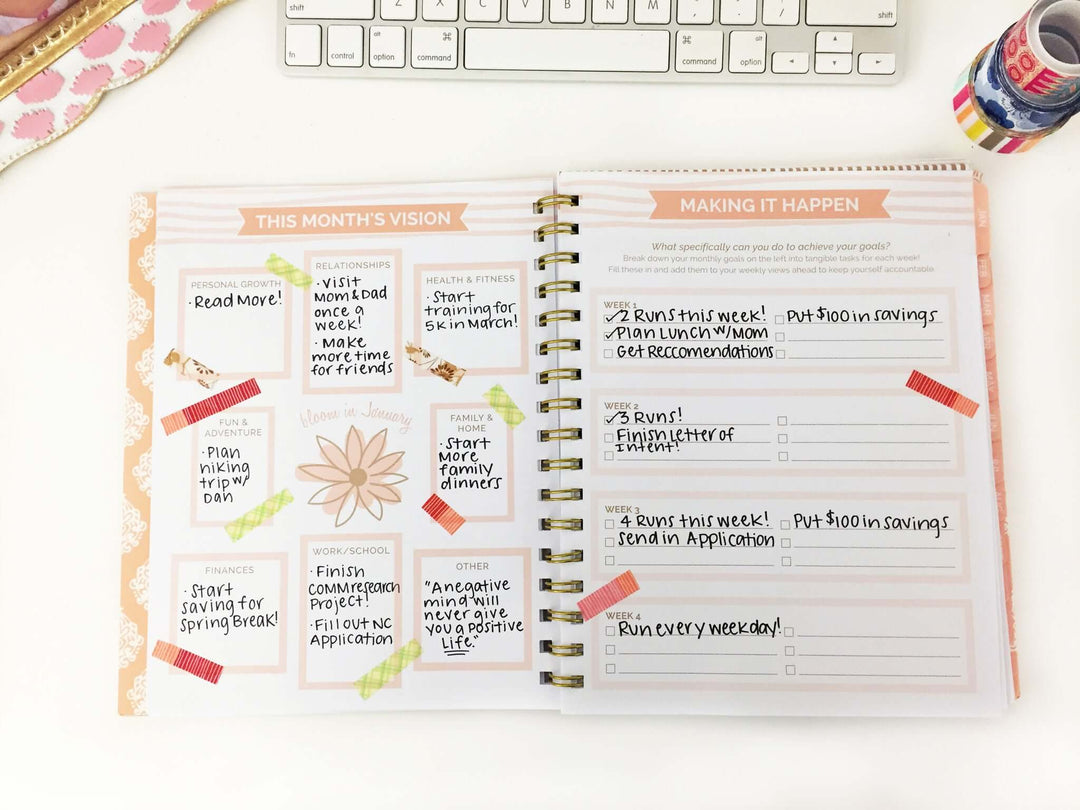 shift Z X C V B N M , . / shift
fn control alt option ⌘ command ⌘ command alt option
THIS MONTH'S VISION
PERSONAL GROWTH
· Read More!
RELATIONSHIPS
· Visit
Mom & Dad
once a
week!
· Make
more time
for friends
HEALTH & FITNESS
· Start
training for
5k in March!
FUN &
ADVENTURE
· Plan
hiking
trip w/
Dan
bloom in January
FAMILY &
HOME
· Start
More
family
dinners
FINANCES
· Start
saving for
Spring Break!
WORK/SCHOOL
· Finish
COMM research
Project!
· Fill out NC
Application
OTHER
"A negative
mind will
never give
you a positive
Life."
MAKING IT HAPPEN
What specifically can you do to achieve your goals?
Break down your monthly goals on the left into tangible tasks for each week!
Fill these in and add them to your weekly views ahead to keep yourself accountable.
WEEK 1
2 Runs this week! Put $100 in savings
Plan Lunch w/ Mom
Get Reccomendations
WEEK 2
3 Runs!
Finish Letter of
Intent!
WEEK 3
4 Runs this week! Put $100 in savings
Send in Application
WEEK 4
Run every weekday!
JAN
FEB
MAR